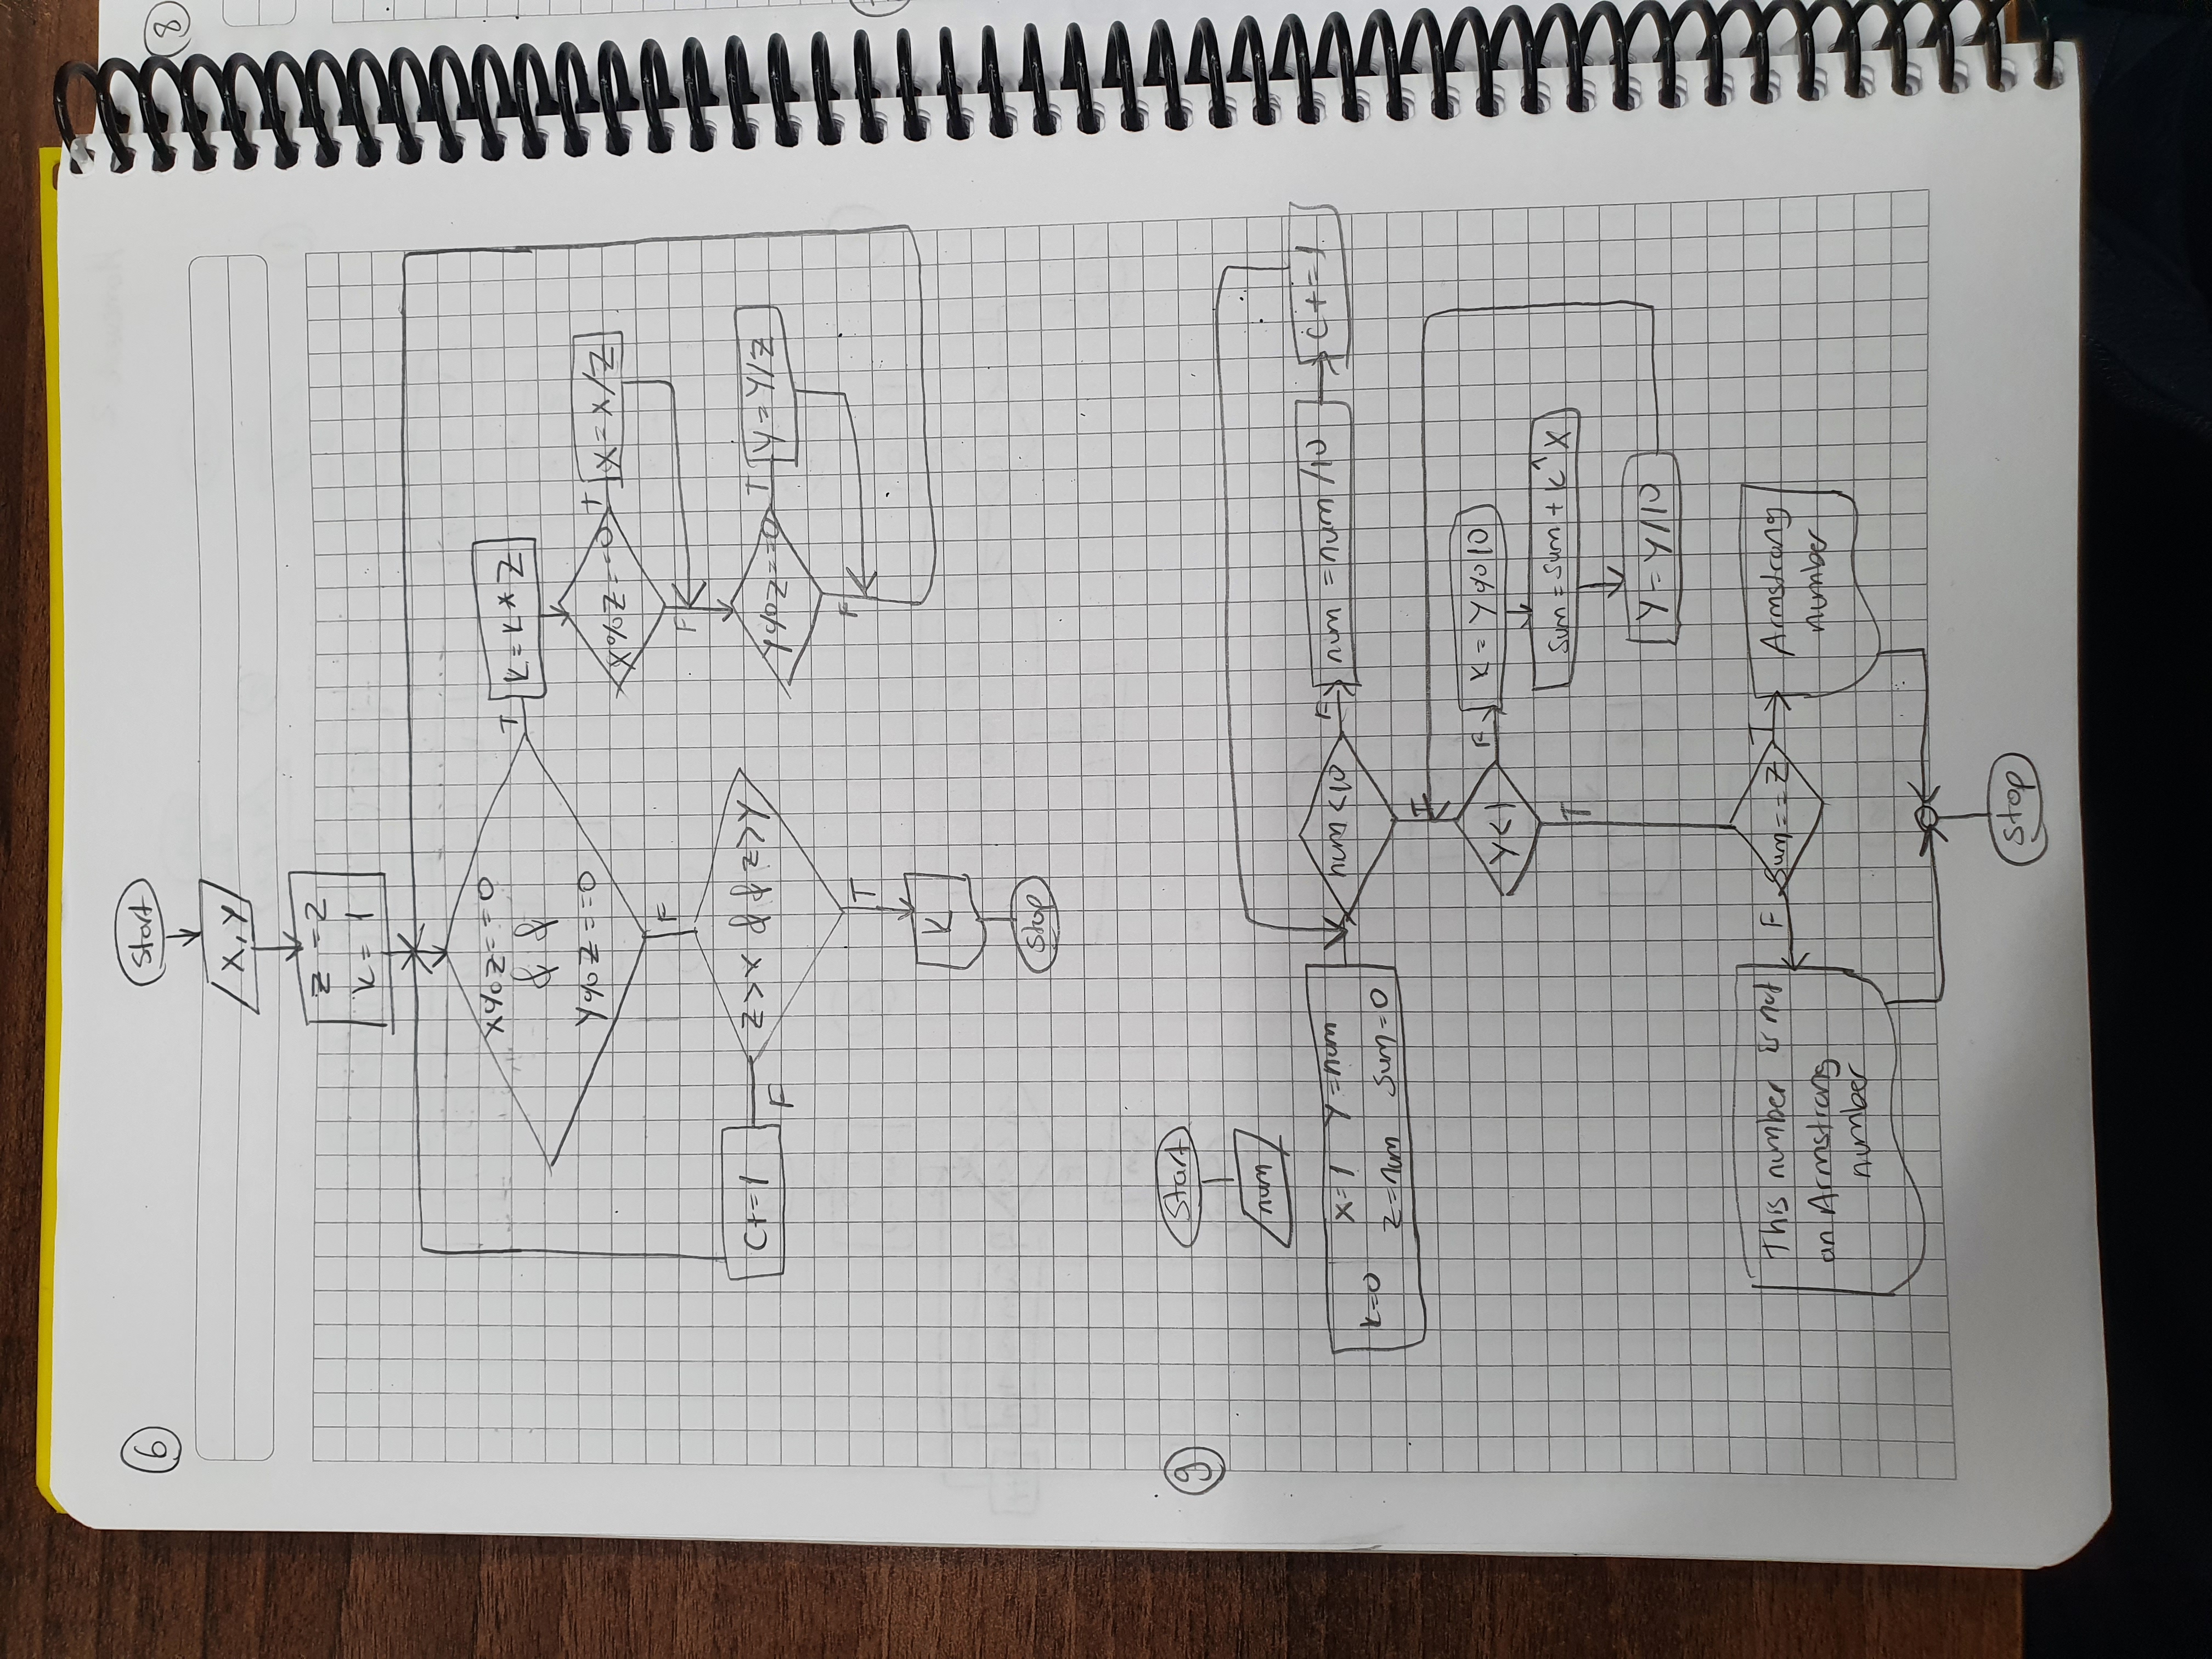 6
Start
X, Y
z = 2
k = 1
X%Z==0
&&
Y%Z==0
T
K=K*Z
X%Z==0
T
X=X/Z
F
F
Z>X && Z>Y
F
C+=1
Y%Z==0
T
Y=Y/Z
F
T
K
Stop
9
Start
num
k=0
X=1 Y=num
Z=num Sum=0
num<10
F
num=num/10
C+=1
T
Y<1
F
K=Y%10
Sum=Sum+K^X
Y=Y/10
T
Sum==Z
F
This number is not
an Armstrong
number
T
Armstrong
number
Stop
8